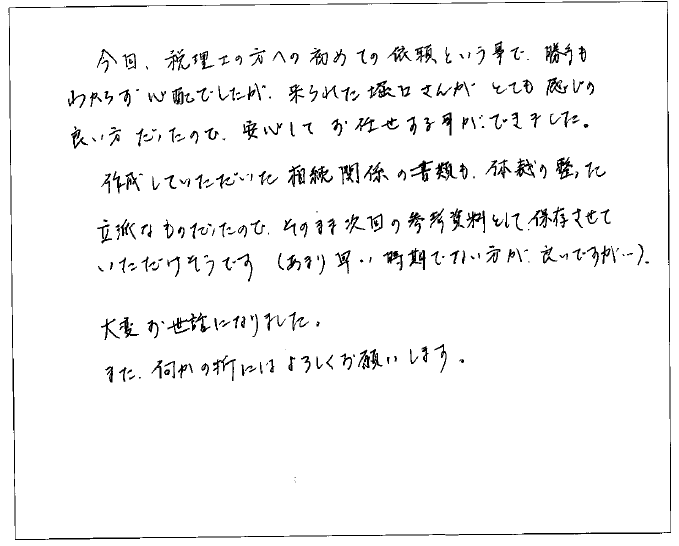 今回、税理士の方への初めての依頼という事で、勝手も
わからず心配でしたが、来られた堀口さんがとても感じの
良い方だったので、安心してお任せする事ができました。
作成していただいた相続関係の書類も、体裁の整った
立派なものだったので、そのまま次回の参考資料として、保存させて
いただけそうです（あまり早い時期でない方が、良いですが…）。
大変お世話になりました。
また、何かの折にはよろしくお願いします。